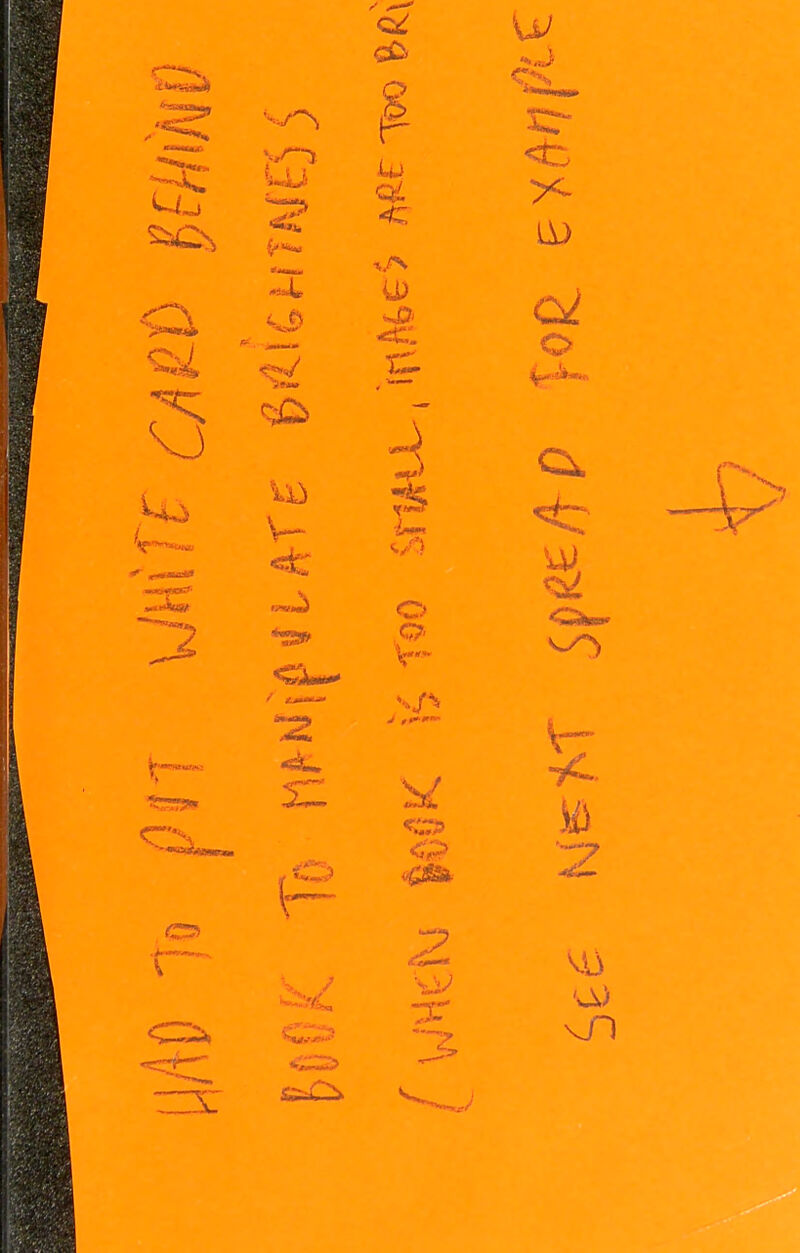 HAD TO PUT WHITE CARD BEHIND
BOOK TO MANIPULATE BRIGHTNESS
(WHEN BOOK iS TOO SMALL, iMAGES ARE TOO BRi
SEE NEXT SPREAD FOR EXAMPLE